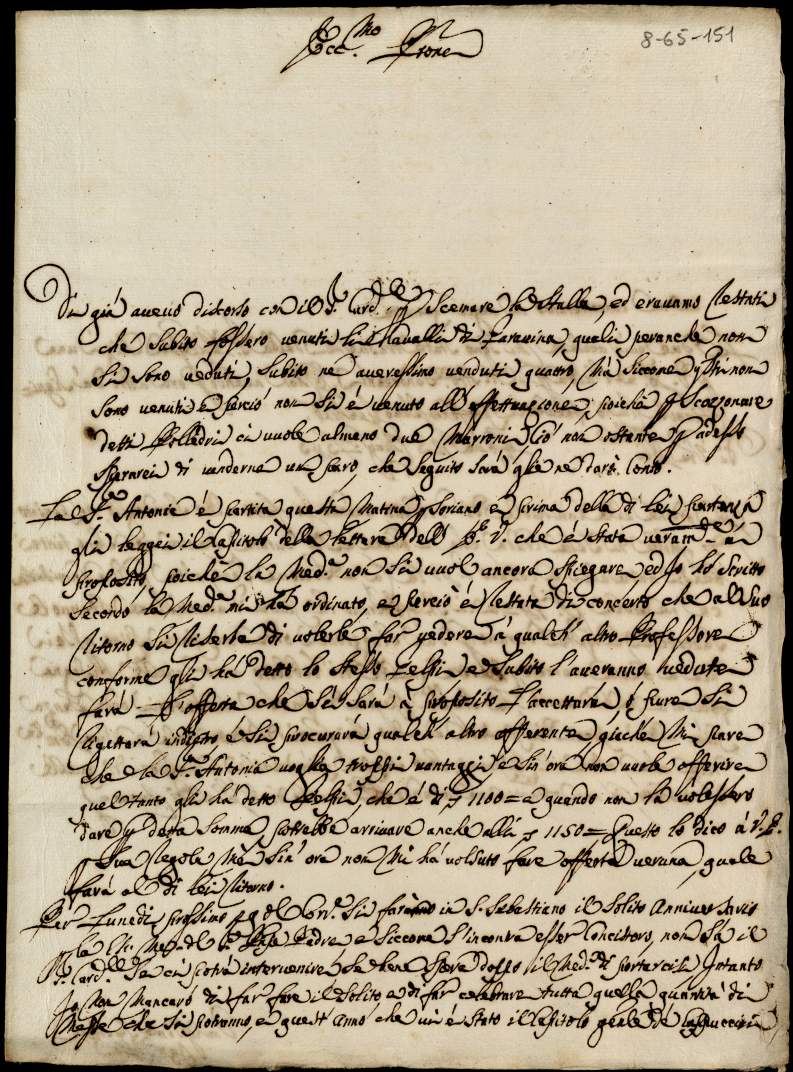 8-65-151
Ecc.mo Prone
Di già avevo discorso con il S.r Card.le p Scemare la Stalla, ed eravamo restati
che subito fossero venuti li Cavalli di, quali peranche non
si sono veduti, subito ne averessimo venduti quattro, mà siccome questi non
sono venuti e perciò non si è venuto all'effettuazione, poichè p Scozzonare
detti Polledri ci vuole almeno due Marroni, Ciò non ostante p adesso
di venderne un paro, che seguito sarà gliene darò Conto.
La S.ra Antonia è partita questa Matina p Soriano e prima della di lei partenza
gli leggei il Capitolo della lettera dell' E. V. che è stata veram.te à
proposito, poichè la Med.a non si vuol ancora spiegare, ed Io hò scritto
secondo la Med.a mi hà ordinato, e perciò è restata di concerto che al suo
ritorno si riserba di voberle far vedere à qualch' altro Professore
conforme gli hà detto lo stesso e subito l'averanno vedute
farà l'offerta che se sarà à proposito l'accettarà, ò pure si
rigettarà, e si procurarà qualch' altro offerente, giachè Mi pare
che la S.ra Antonia voglia troppi vantaggi e sin' ora non vuole offerire
quel tanto gli hà detto, che è di 1100= e quando non la volessero
dare p detta somma, potrebbe arrivare anche alli 1150= Questo lo dico à V. E.
p sua regola, mà sin' ora non Mi hà volsuto fare offerta veruna, quale
farà al di lei ritorno.
Per Lunedì prossimo 9 del Corr.e si faranno in S. Sebastiano il solito Anniversario
p la Ecc. Padre e siccome s'incontra esser Concistoro, non sà il
S.r Card.le se ci potrà intervenire, se bene spera doppo il Med.o di portarcisi, Intanto
Io non Mancarò di far fare il solito, e di far celebrare tutta quella quantità di
Messe che si potranno, e quest' anno che vi è stato il Capitolo gen.le de Cappuccini